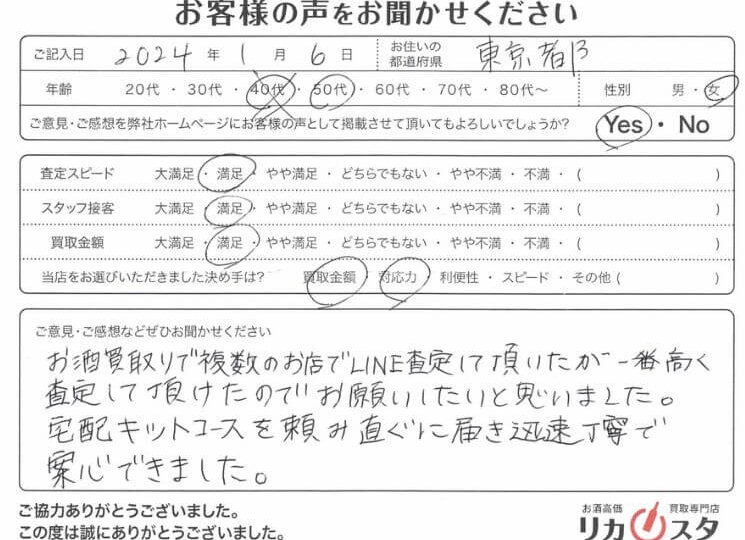 お客様の声をお聞かせください
ご記入日 2024 年 1 月 6 日 お住いの都道府県 東京都
年齢 20代・30代・40代・50代・60代・70代・80代～ 性別 男・女
ご意見・ご感想を弊社ホームページにお客様の声として掲載させて頂いてもよろしいでしょうか? Yes・No
査定スピード 大満足・満足・やや満足・どちらでもない・やや不満・不満・( )
スタッフ接客 大満足・満足・やや満足・どちらでもない・やや不満・不満・( )
買取金額 大満足・満足・やや満足・どちらでもない・やや不満・不満・( )
当店をお選びいただきました決め手は? 買取金額・対応力・利便性・スピード・その他( )
ご意見・ご感想などぜひお聞かせください
お酒買取りで複数のお店でLINE査定して頂いたが一番高く
査定して頂けたのでお願いしたいと思いました。
宅配キットコースを頼み直ぐに届き迅速丁寧で
安心できました。
ご協力ありがとうございました。
この度は誠にありがとうございました。
お酒高価 買取専門店
リカスタ